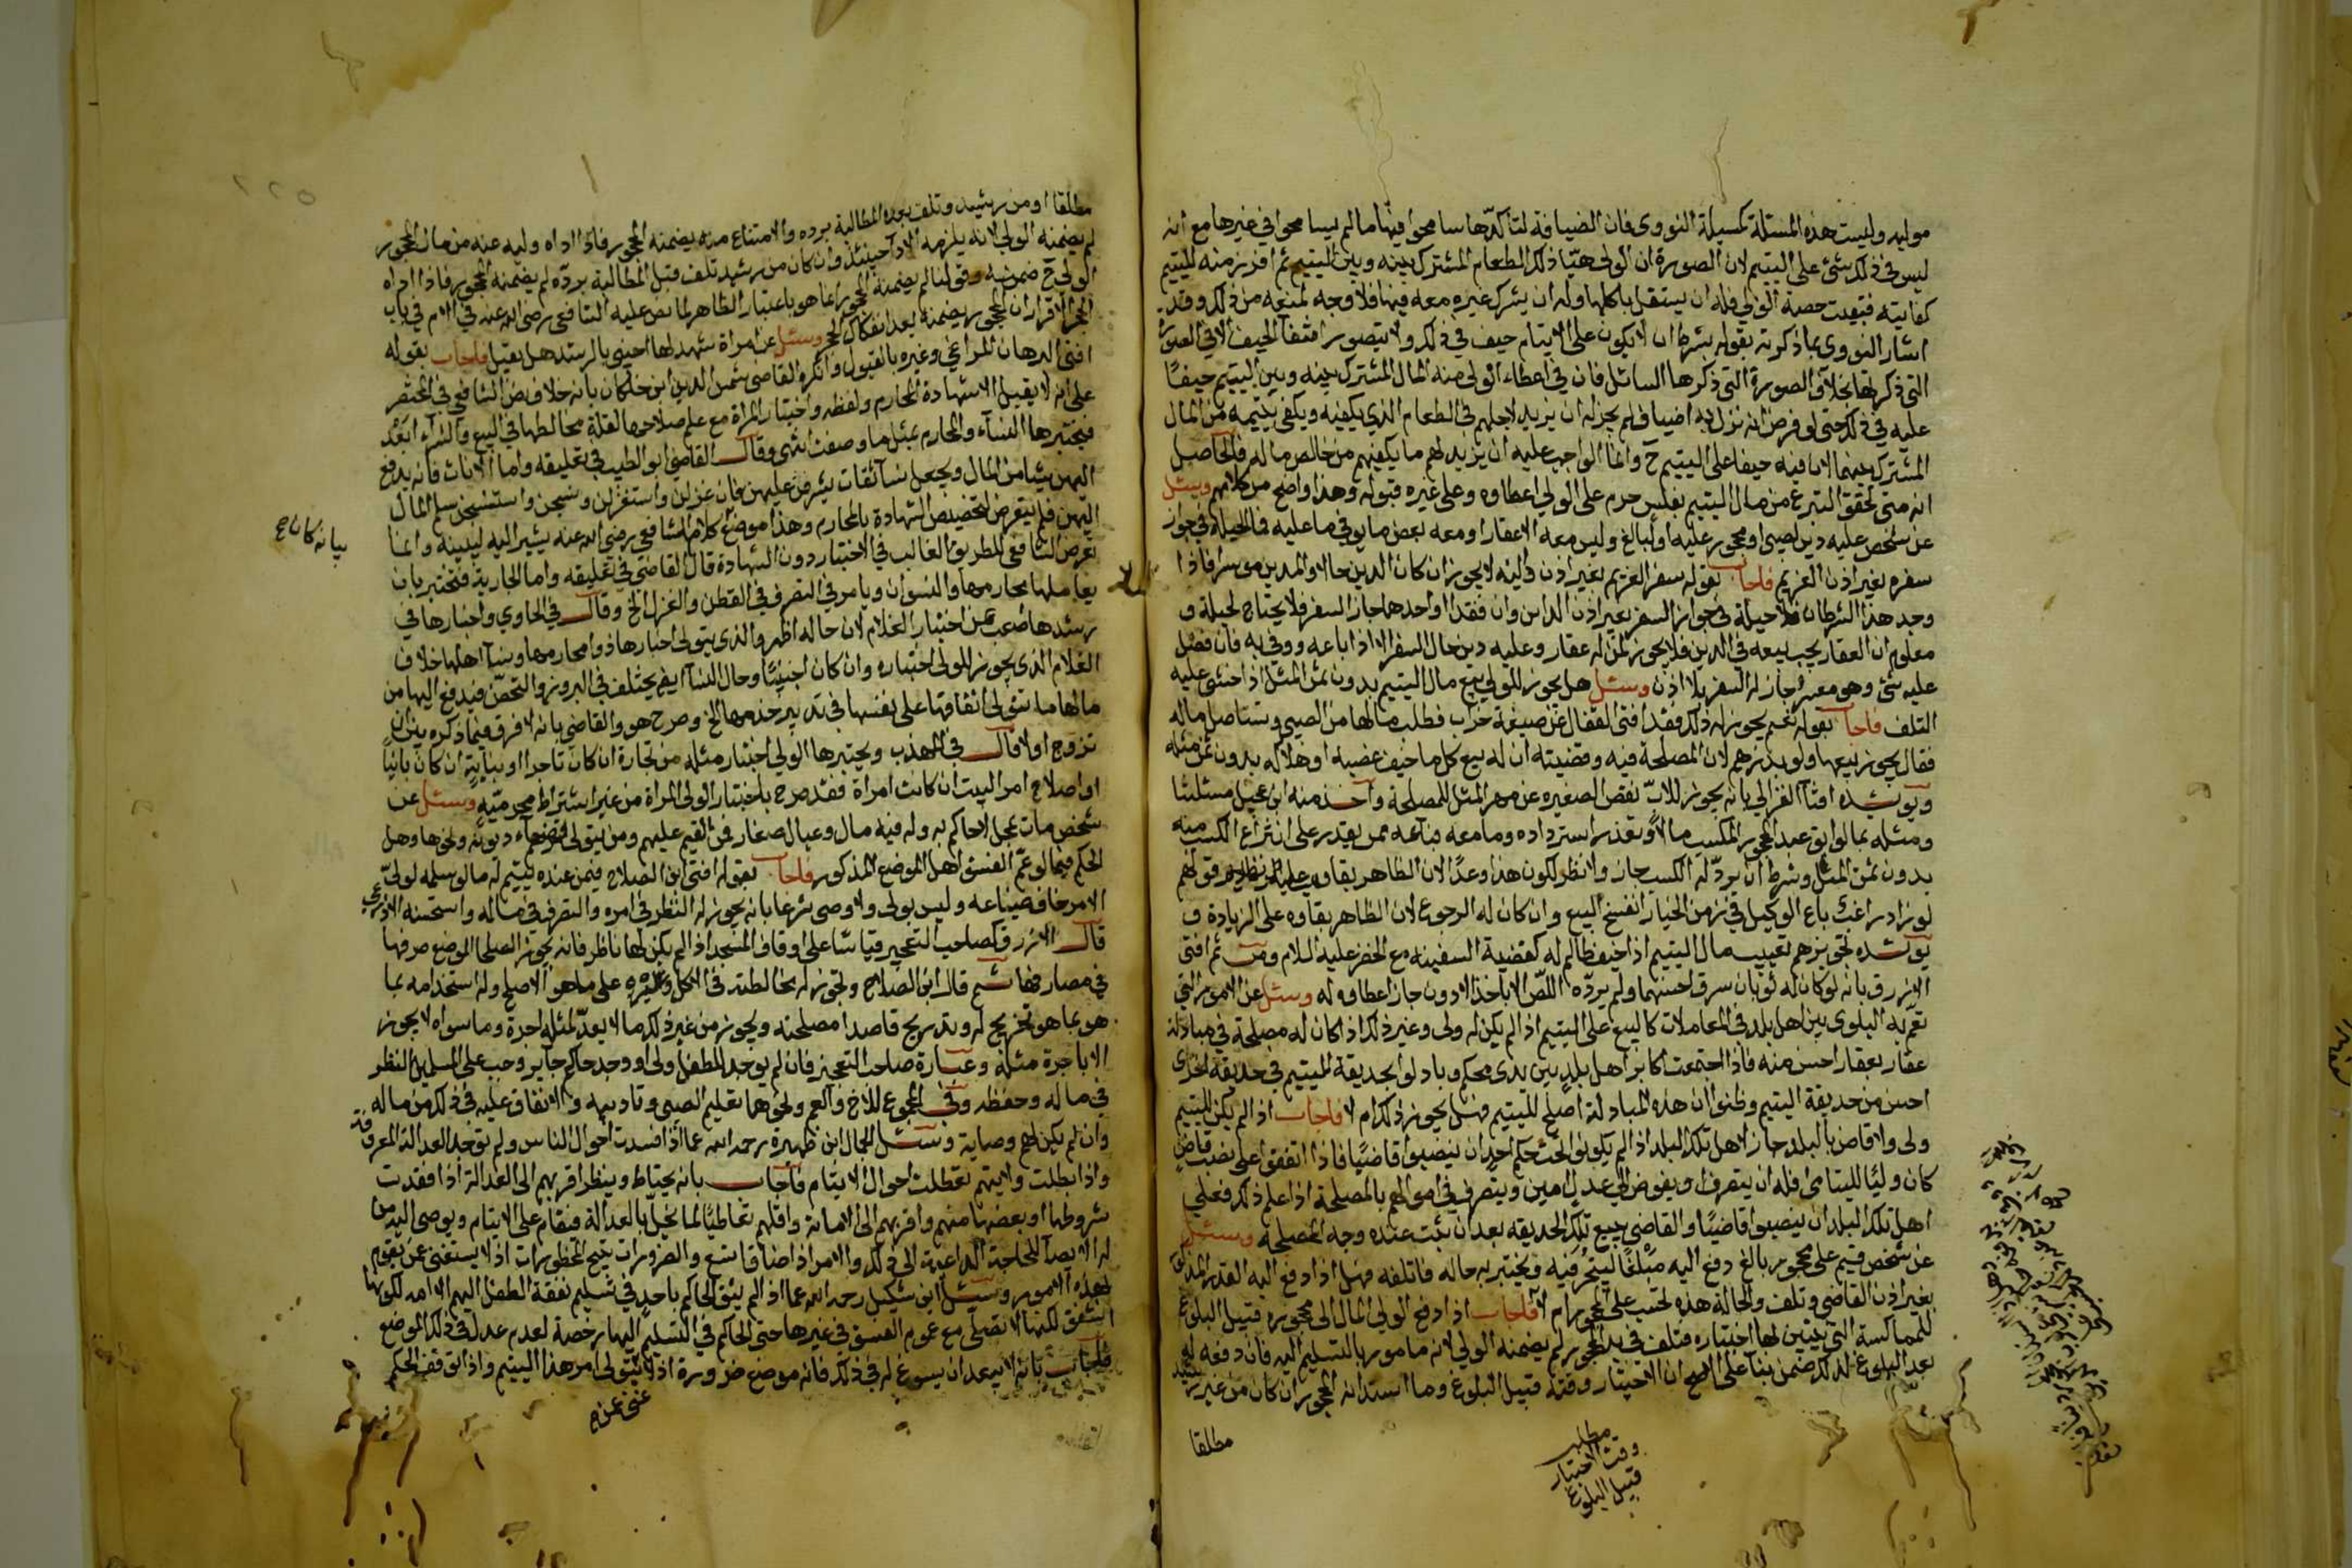 موليه وليست هذه المسئلة كمسيلة النووي فان الضيافة لتاكدها سامحوا فيها ما لم يسامحوا في غيرها مع انه
ليس في ذلك شئ على اليتيم لان الصورة ان الولي هيّا ذلك الطعام المشترك بينه وبين اليتيم ثم افرز منه لليتيم
كفايته فبقيت حصة الولي فله ان يستقل باكلها وله ان يشرك غيره معه فيها فلا وجه لمنعه من ذلك وقد
اشار النووي بما ذكرته بقوله بشرط ان لا يكون على الايتام حيف في ذلك ولا يتصور انتفآ الحيف الا في الصورة
التي ذكرتها بخلاف الصورة التي ذكرها السائل فان في اعطاء الولي منه المال المشترك بينه وبين اليتيم حيفًا
عليه في ذلك حتى لو فرض انه نزل به اضياف لم يجز له ان يزيد لاجلهم في الطعام الذي يكفيه ويكفي يتيمه من المال
المشترك بينهما لان فيه حيفا على اليتيم ح وانما الواجب عليه ان يزيد لهم ما يكفيهم من خالص ماله فالحاصل
انه متى تحقق التبرع من مال اليتيم بفلس حرم على الولي اعطاوه وعلى غيره قبوله وهذا واضح من كلامهم وسئل
عن شخص عليه دين لصبي او محجور عليه او لبالغ وليس معه الا عقار او معه بعض ما يوفي ما عليه فما الحيلة في جواز
سفره بغير اذن الغريم فاجاب بقوله سفر الغريم بغير اذن داينه لا يجوز ان كان الدين حالا والمدين موسرا فاذا
وجد هذا الشرطان فلا حيلة في جواز السفر بغير اذن الداين وان فقدا او احدهما جاز السفر فلا يحتاج لحيلة و
معلوم ان العقار يجب بيعه في الدين فلا يجوز لمن له عقار وعليه دين حال السفر الا اذا باعه ووفى به فان فضل
عليه شئ وهو معسر جاز له السفر بلا اذن وسئل هل يجوز للولي بيع مال اليتيم بدون ثمن المثل اذا خشي عليه
التلف فاجاب بقوله نعم يجوز له ذلك فقد افتى القفال عن ضيعة خراب فطلب مالها من الصبي وتستاصل ماله
فقال يجوز بيعها ولو بدرهم لان المصلحة فيه وقضيته ان له بيع كل ما خيف غصبه او هلاكه بدون ثمن مثله
ويويده افتآ الغزالي بانه يجوز للاب نقص الصغيره عن مهر المثل للمصلحة واخذ منه ابن عجيل مسئلتنا
ومثله بما لو ابق عبد المحجور المكسب مالاً وتعذر استرداده وما معه فباعه ممن يقدر على انتزاع الكسب منه
بدون ثمن المثل وشرط ان يردّ له الكسب جاز ولا نظر لكون هذا وعدًا لان الظاهر بقاوه عليه نظير قولهم
لو زاد راغب باع الوكيل في زمن الخيار انفسخ البيع وان كان له الرجوع لان الظاهر بقاوه على الزيادة و
يويده تجويزهم تعييب مال اليتيم اذا خيف ظالم له كقضية السفينه مع الخضر عليه السلام ومن ثم افتى
الازرق بانه لو كان له ثوبان سرق احسنهما ولم يردّه اللص الا باخذ الادون جاز اعطاوه له وسئل عن الامور التي
تعم به البلوى بين اهل بلد في المعاملات كالبيع على اليتيم اذا لم يكن له ولي وغير ذلك اذا كان له مصلحة في مبادلة
عقار بعقار احسن منه فاذا اجتمعت اكابر اهل بلد بين يدي محكم وبادلوا بحديقة لليتيم في حديقة اخرى
احسن من حديقة اليتيم وظنوا ان هذه المبادلة اصلح لليتيم فهل يجوز ذلك ام لا فاجاب اذا لم يكن لليتيم
ولي ولا قاض بالبلد جاز لاهل تلك البلد اذا لم يكونوا تحت حكم احد ان ينصبوا قاضيًا فاذا اتفقوا على نصب قاض
كان وليًا لليتامى فله ان يتصرف او يفوض الى عدل امين ويتصرف في اموالهم بالمصلحة اذا علم ذلك فعلى
اهل تلك البلد ان ينصبوا قاضيًا والقاضي يبيع تلك الحديقه بعد ان يثبت عنده وجه المصلحه وسئل
عن شخص قيم على محجور بالغ دفع اليه مبلغًا ليتجر فيه ويختبر به حاله فاتلفه فهل اذا دفع اليه القدر المذكور
بغير اذن القاضي وتلف والحالة هذه يحسب على المحجور ام لا فاجاب اذا دفع الولي المال الى محجوره قبيل البلوغ
للمماكسة التي يتبين لها اختباره فتلف في يد المحجور لم يضمنه الولي لانه مامور بالتسليم اليه فان دفعه له
بعد البلوغ لذلك ضمن بنآ على الاصح ان الاختبار وقته قبيل البلوغ وما استدانه المحجور ان كان من غير رشيد
مطلقا
مطلب
وقت الاختبار
قبيل البلوغ
مطلقا او من رشيد وتلف بعد المطالبة برده والامتناع منه يضمنه المحجور فاذا اداه وليه عنه من مال المحجور
لم يضمنه الولي لانه يلزمه الادآ حينئذ وان كان من رشيد تلف قبل المطالبة بردّه لم يضمنه المحجور فاذا اداه
الولي ح ضمنه وقولنا لم يضمنه المحجور انما هو باعتبار الظاهر لما نص عليه الشافعي رضي الله عنه في الام في باب
الاقرار ان المحجور يضمنه بعد انفكاك الحجر وسئل عن امراة شهد لها اجنبي بالرشد هل يقبل فاجاب بقوله
افتى البرهان المراغي وغيره بالقبول وانكره القاضي شمس الدين ابن خلكان بانه خلاف نص الشافعي في المختصر
على انه لا يقبل الا شهادة المحارم ولفظه واختبار المراة مع علم صلاحها لقلة مخالطتها في البيع والشرآء ابعد
فيختبرها النسآء والمحارم بمثل ما وصفت انتهى وقال القاضي ابو الطيب في تعليقه واما الاناث فانه يدفع
اليهن شيئا من المال ويجعل نسآ ثقات يشرفن عليهن فان غزلن واستغزلن ونسجن واستنسجن سلم المال
اليهن فلم يتعرض لتخصيص الشهادة بالمحارم وهذا موضح كلام الشافعي رضي الله عنه يشير اليه ليبينه وانما
تعرض الشافعي للطريق الغالب في الاختبار دون الشهادة قال القاضي في تعليقه واما الجارية فتختبر بان
بيانه كان ع
يعاملها محارمها والنسوان ويامر في التصرف في القطن والغزل الخ وقال في الحاوي واختبارها في
رشدها اصعب من اختبار الغلام لان حاله اظهر والذي يتولى اختبارها ذوا محارمها ونسآ اهلها خلاف
الغلام الذي يجوز للولي اختباره وان كان اجنبيًا وحال النسآ ايضا يختلف في البروز والتحصن فيدفع اليها من
مالها ما تتولى انفاقها على نفسها في تدبير خدمها الخ وصرح هو والقاضي بانه لا فرق فيما ذكره بين ان
تزوج او لا قال في المهذب ويختبرها الولي اختبار مثله من تجارة ان كان تاجرا او بناية ان كان بانيًا
او اصلاح امر البيت ان كانت امراة فقد صرح باختبار الولي المراة من غير اشتراط محرميّه وسئل عن
شخص مات بمحل لا حاكم به وله فيه مال وعيال صغار فمن القيم عليهم ومن يتولى قضآء ديونه ونحوها وهل
الحكم فيما لو عمّ الفسق اهل الموضع المذكور فاجاب بقوله افتى ابن الصلاح فيمن عنده يتيم له مال لو سلمه لوليّ
الامر خاف ضياعه وليس بولي ولا وصي شرعا بانه يجوز له النظر في امره والتصرف في ماله واستحسنه الاذرعي
قال الازرق كصاحب التعجير قياسًا على اوقاف المسجد اذا لم يكن لها ناظر فانه يجوز لصلحا الموضع صرفها
في مصارفها ثم قال ابن الصلاح وتجوز له مخالطته في الاكل وغيره على ما هو الاصلح وله استخدامه بما
هو بما هو تخريج له وتدريج قاصدا مصلحته ويجوز من غير ذلك ما لا يعدّ لمثله اجرة وما سواه لا يجوز
الا باجرة مثله وعبارة صاحب التعجيز فان لم يوجد للطفل ولي او وجد حاكم جاير وجب على المسلمين النظر
في ماله وحفظه وفي المجموع للاخ والعم ونحوهما تعليم الصبي وتاديبه والانفاق عليه في ذلك من ماله
وان لم يكن لهم وصاية وسئل الجمال ابن ظهيرة رحمه الله عما اذا فسدت احوال الناس ولم توجد العدالة المعروفة
واذا بطلت ولايتهم تعطلت احوال الايتام فاجاب بانه يحتاط وينظر اقربهم الى العدالة اذا فقدت
شروطها او بعضها منهم واقربهم الى الامانة واقلهم تعاطيًا لما يخلّ بالعدالة فيقام على الايتام ويوصى اليه من
له الايصآ للحاجة الداعية الى ذلك والامر اذا ضاق اتسع والضرورات تبيح المحظورات اذ لا يستغنى عن يقوم
لهذه الامور وسئل ابن شكيل رحمه الله عما اذا لم يثق الحاكم باحد في تسليم نفقة الطفل اليهم الا امه لكونها
اشفق لكنها لا تصلي مع عموم الفسق في غيرها حتى الحاكم في التسليم اليها رخصة لعدم عدل في ذلك الموضع
فاجاب بانه لا يبعد ان يسوغ له في ذلك فانه موضع ضرورة اذ لا يتولى امر هذا اليتيم واذا توقف الحكم